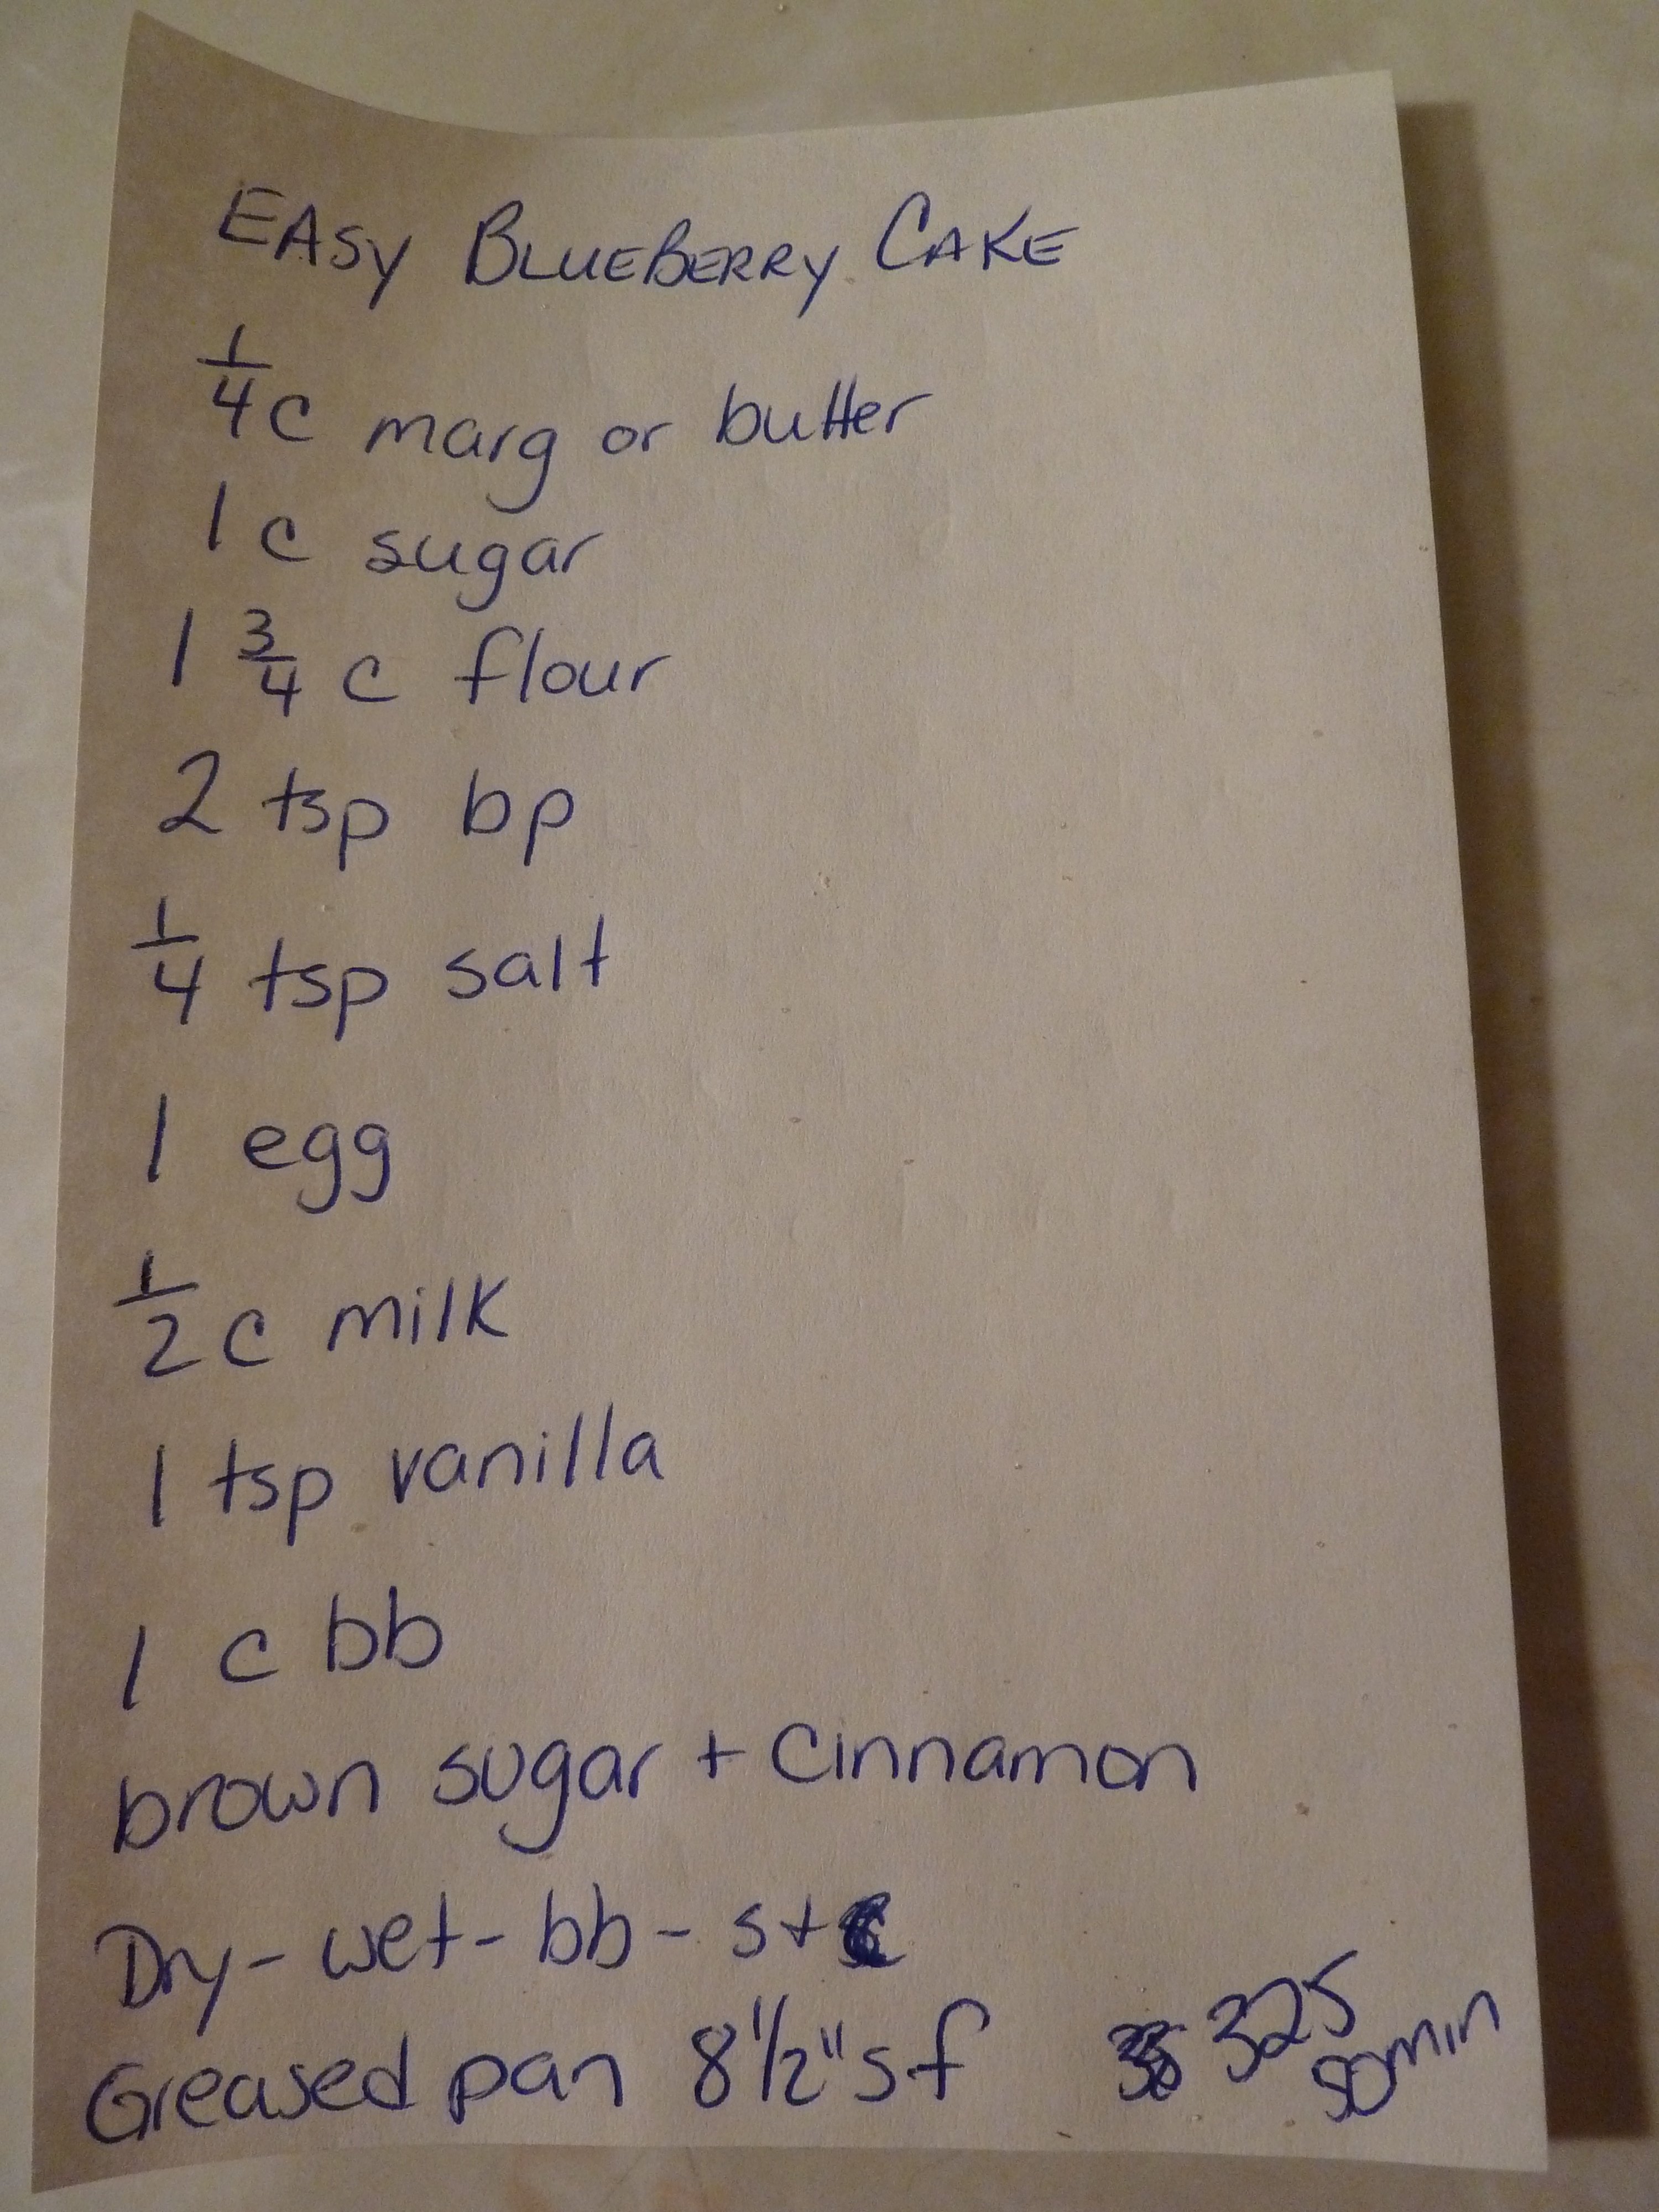 EASY BLUEBERRY CAKE
1/4 c marg or butter
1 c sugar
1 3/4 c flour
2 tsp bp
1/4 tsp salt
1 egg
1/2 c milk
1 tsp vanilla
1 c bb
brown sugar + cinnamon
Dry - wet - bb - s + c
Greased pan 8 1/2" sf 325
50 min